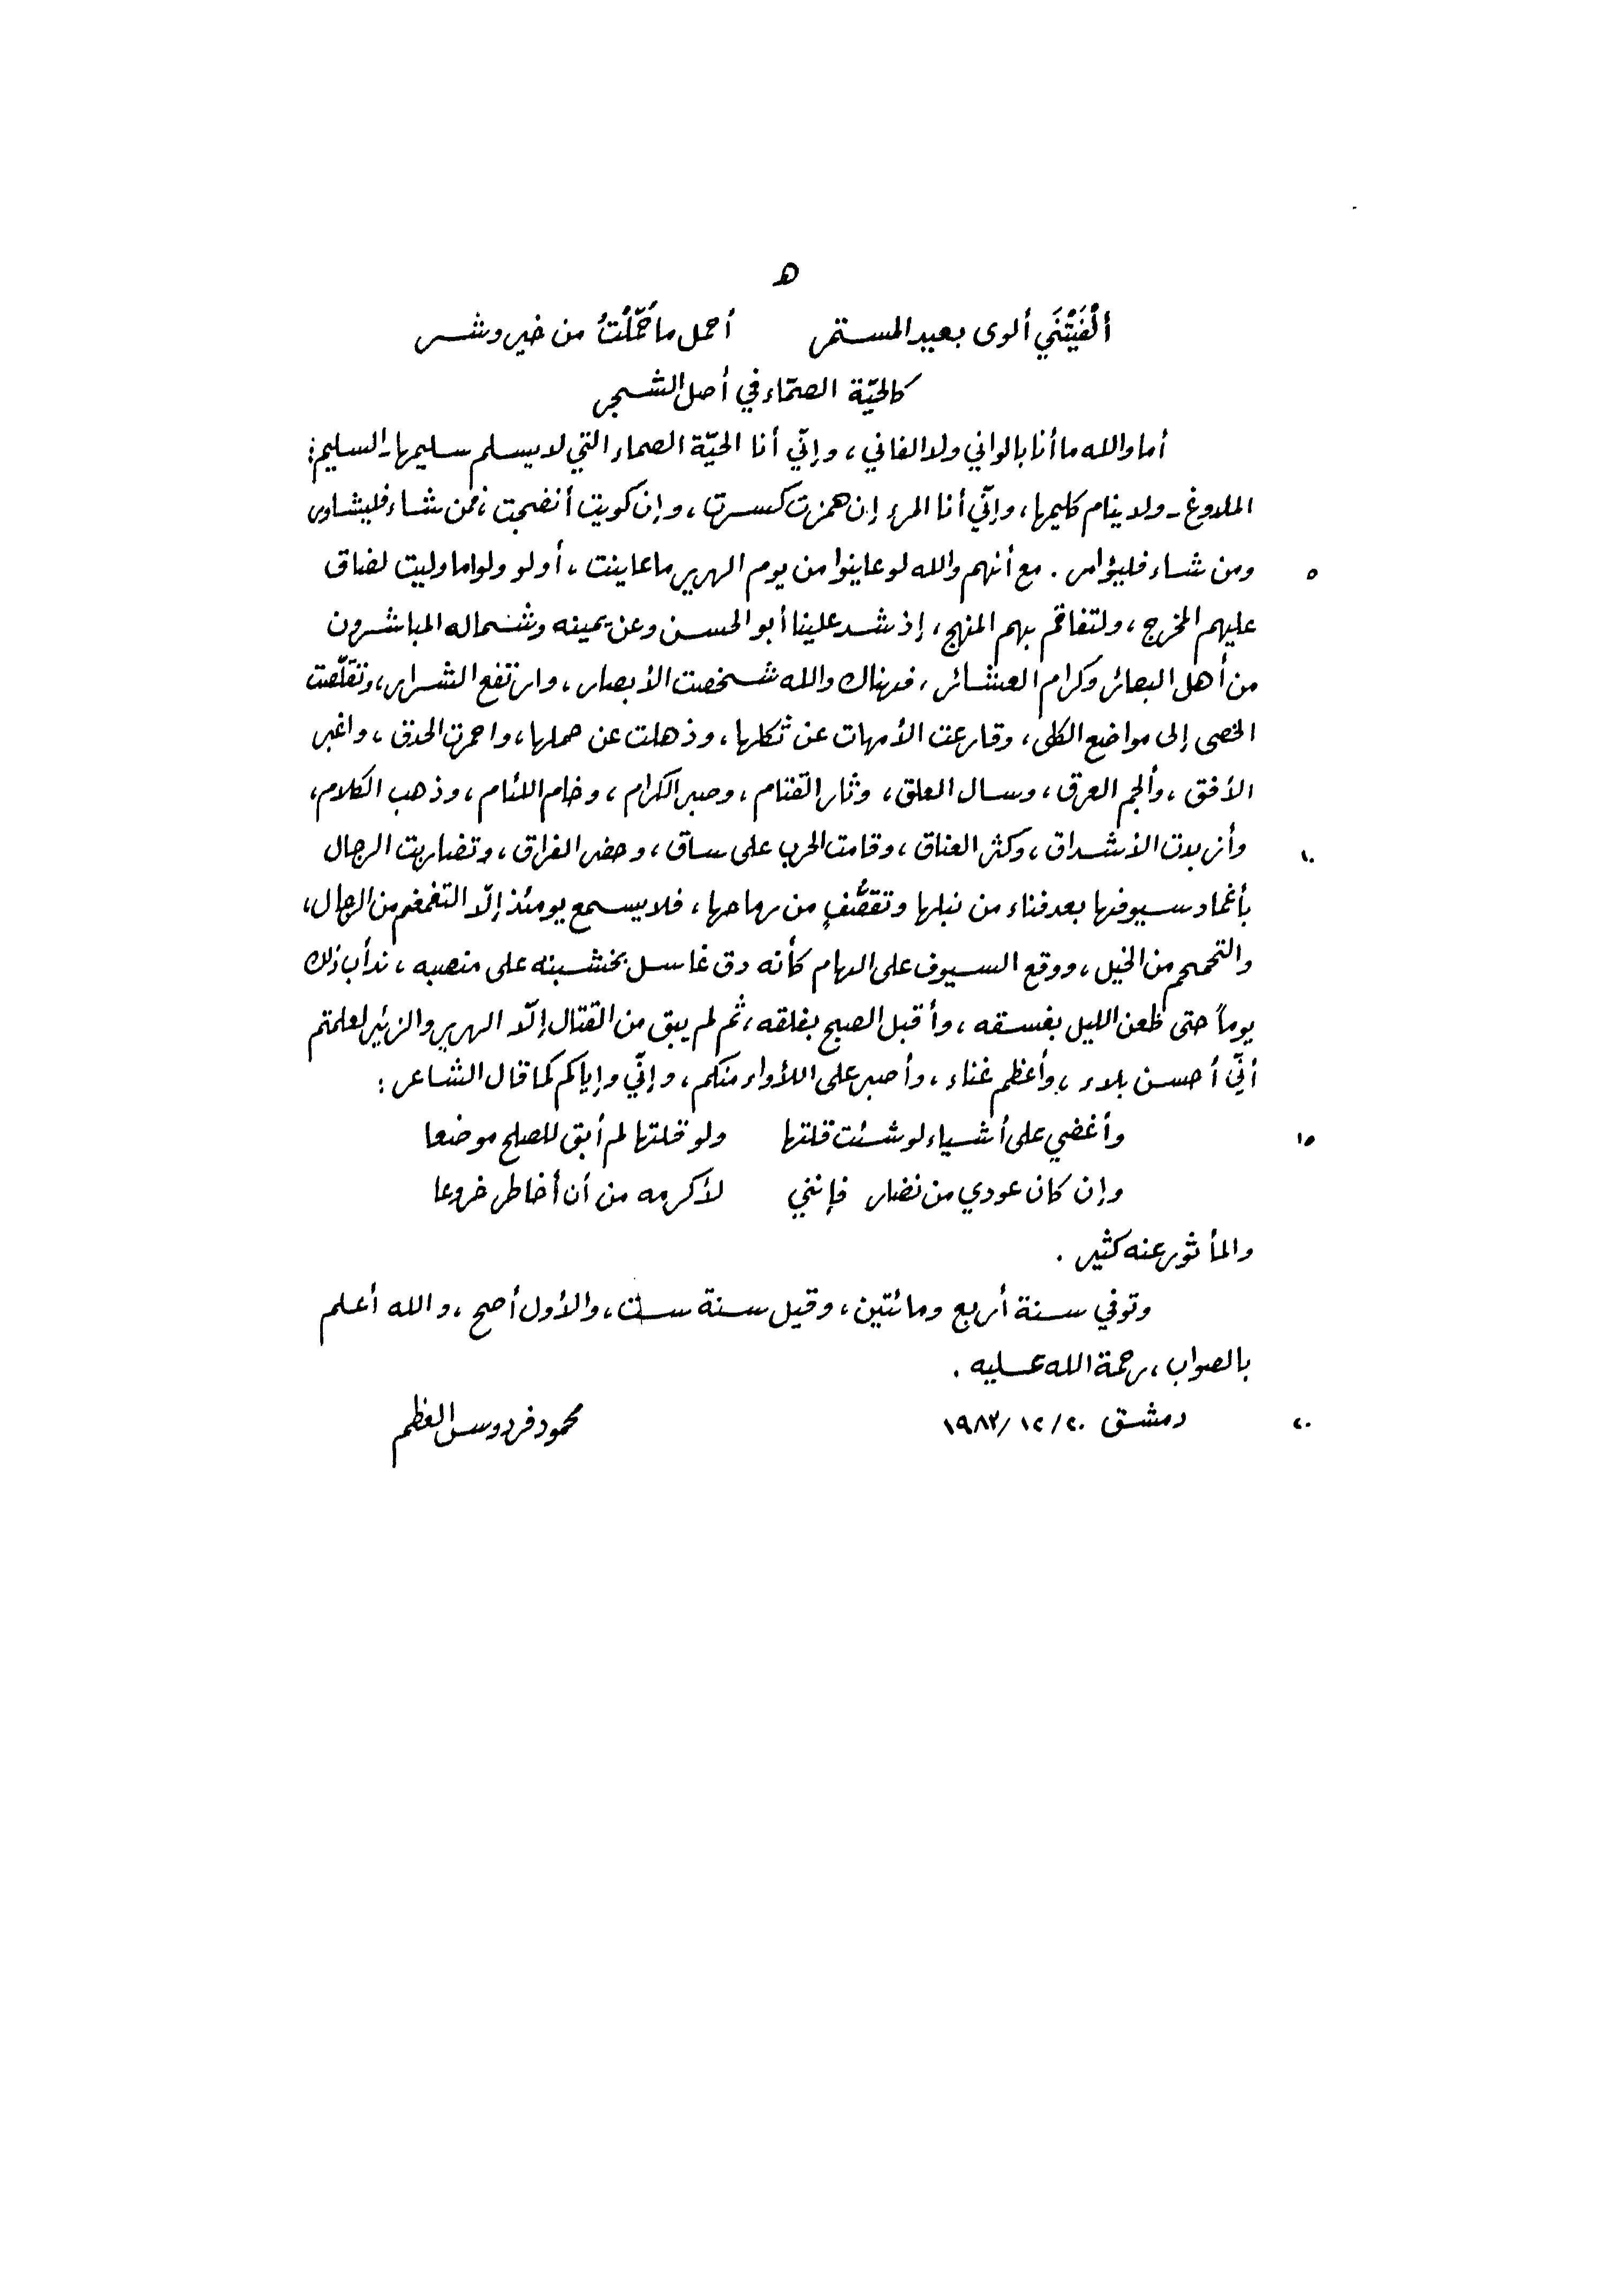 ه
ألْفَيْتَني ألوى بعيد المستمر أحمل ما حُمّلْتُ من خير وشر
كالحيّة الصمّاء في أصل الشجر
أما والله ما أنا بالواني ولا الفاني، وإنّي أنا الحيّة الصماء التي لا يسلم سليمها ـ السليم:
الملدوغ ـ ولا ينام كليمها، وإنّي أنا المرء إن همزت كسرت، وإن كويت أنضجت، فمن شاء فليشاور
٥ ومن شاء فليؤامر. مع أنهم والله لو عاينوا من يوم الهرير ما عاينت، أو لو ولوا ما وليت لضاق
عليهم المخرج، ولتفاقم بهم المنهج، إذ شد علينا أبو الحسن وعن يمينه وشماله المباشرون
من أهل البصائر وكرام العشائر، فهناك والله شخصت الأبصار، وارتفع الشرار، وتقلّصت
الخصى إلى مواضع الكلى، وقارعت الأمهات عن ثكلها، وذهلت عن حملها، واحمرت الحدق، واغبر
الأفق، وألجم العرق، وسال العلق، وثار القتام، وصبر الكرام، وخام اللئام، وذهب الكلام،
١٠ وأزبدت الأشداق، وكثر العناق، وقامت الحرب على ساق، وحضر الفراق، وتضاربت الرجال
بأغماد سيوفها بعد فناء من نبلها وتقصُّفٍ من رماحها، فلا يسمع يومئذ إلّا التغمغم من الرجال،
والتحمحم من الخيل، ووقع السيوف على الهام كأنه دق غاسل بخشبته على منصبه، ندأب ذلك
يوماً حتى ظعن الليل بغسقه، وأقبل الصبح بفلقه، ثم لم يبق من القتال إلّا الهرير والزئير لعلمتم
أنّي أحسن بلاء، وأعظم غناء، وأصبر على اللأواء منكم، وإنّي وإياكم كما قال الشاعر:
١٥ وأغضي على أشياء لو شئت قلتها ولو قلتها لم أبق للصلح موضعا
وإن كان عودي من نضار فإنني لأكرمه من أن أخاطر خروعا
والمأثور عنه كثير.
وتوفي سنة أربع ومائتين، وقيل سنة ست، والأول أصح، والله أعلم
بالصواب، رحمة الله عليه.
٢٠ دمشق ٢٠/١٢/١٩٨٣ محمود فردوس العظم